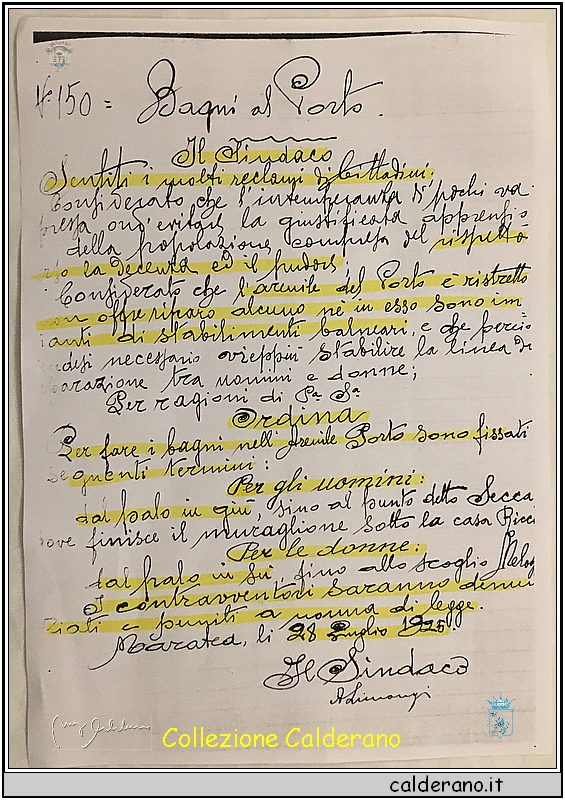 N. 150 = Bagni al Porto.
Il Sindaco
Sentiti i molti reclami di cittadini:
Considerato che l'intemperanza di pochi va
ond'evitare la giustificata apprensio
della popolazione compresa del rispetto
la decenza ed il pudore;
Considerato che l'arenile del Porto è ristretto
non offre riparo alcuno nè in esso sono im
ianti di stabilimenti balneari, e che perciò
ndesi necessario vieppiù stabilire la linea di
parazione tra uomini e donne;
Per ragioni di Pa Sa
Ordina
Per fare i bagni nell'Arenile Porto sono fissati
seguenti termini:
Per gli uomini:
dal palo in giù, sino al punto detto Secca
ove finisce il muraglione sotto la casa Ricci
Per le donne:
dal palo in su, fino allo scoglio
I contravventori saranno denun
ziati e puniti a norma di legge.
Maratea, li 28 Luglio 1925.
Il Sindaco
A Limongi
Collezione Calderano
calderano.it